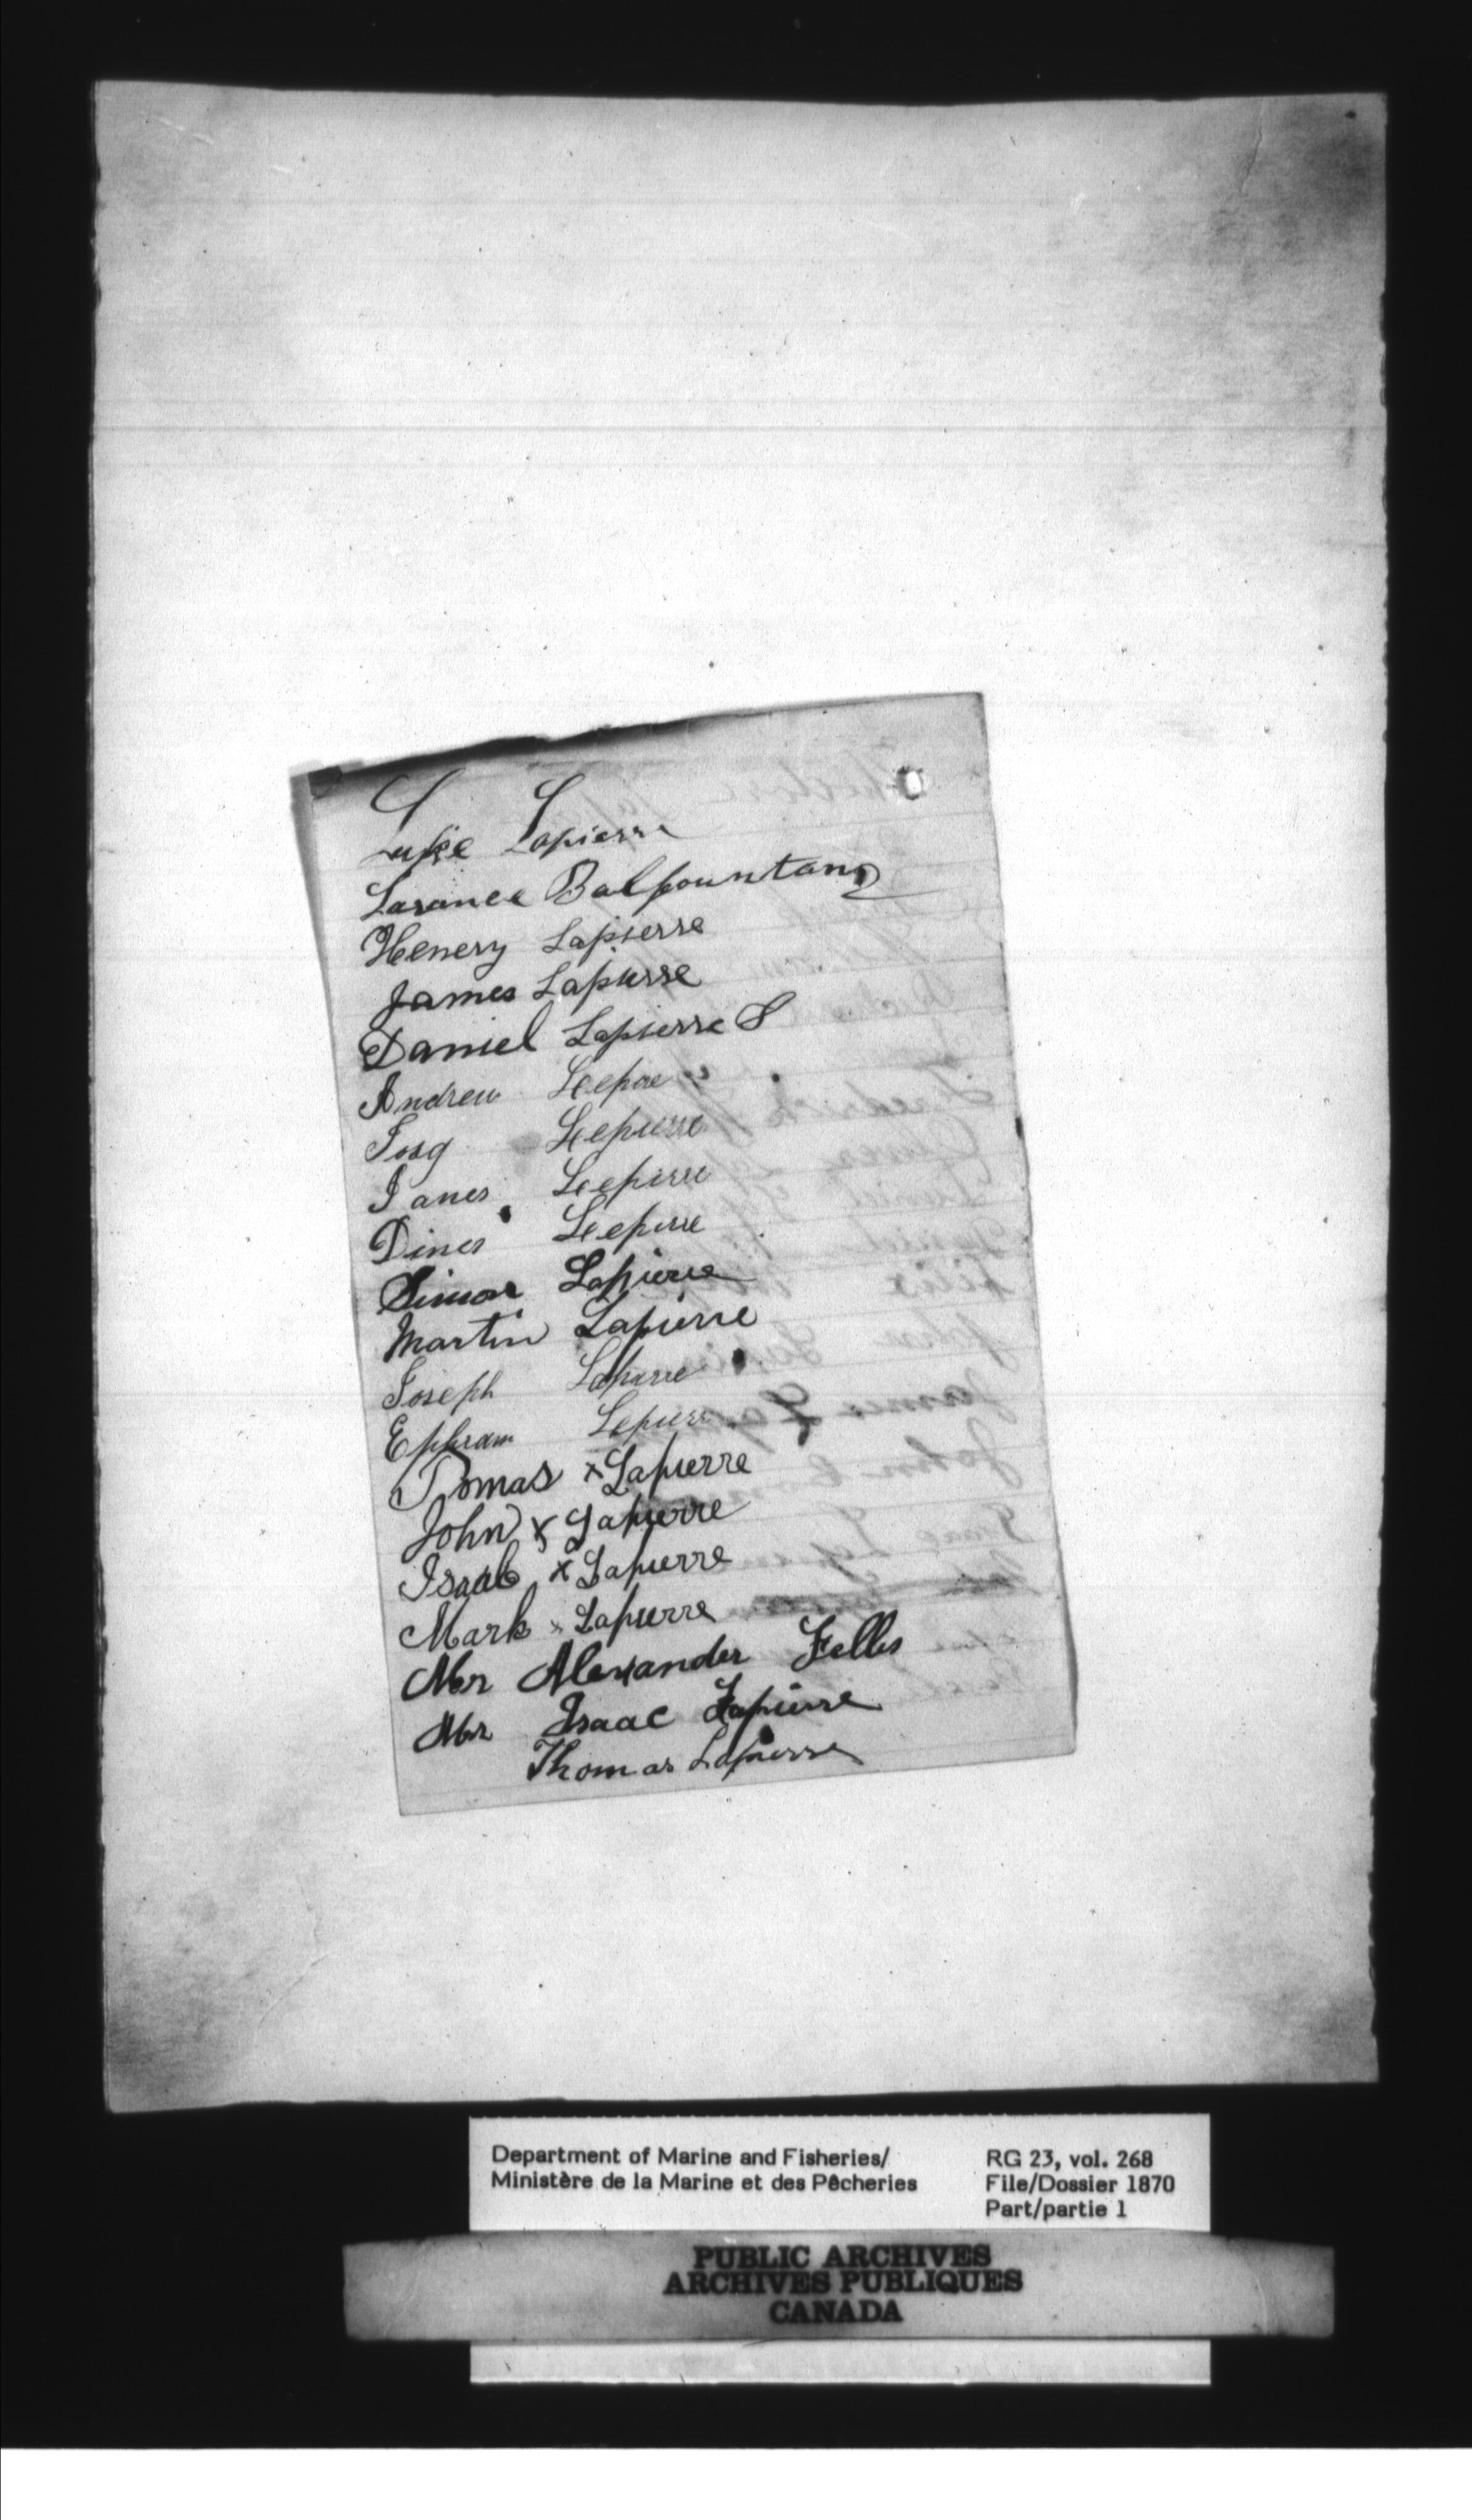 Luke Lapierre
Larance Balfountang
Henery Lapierre
James Lapierre
Daniel Lapierre S
Andrew Leepire
Leepierre
James Leepirre
Dines Leepirre
Simon Lapierre
Martin Lapierre
Joseph Laparre
Ephram Lepierr
Tomas x Lapierre
John x Lapierre
Isaac x Lapierre
Mark x Lapierre
Mr Alexander Felles
Mr Isaac Lapierre
Thomas Lapierre
Department of Marine and Fisheries/ RG 23, vol. 268
Ministère de la Marine et des Pêcheries File/Dossier 1870
Part/partie 1
PUBLIC ARCHIVES
ARCHIVES PUBLIQUES
CANADA